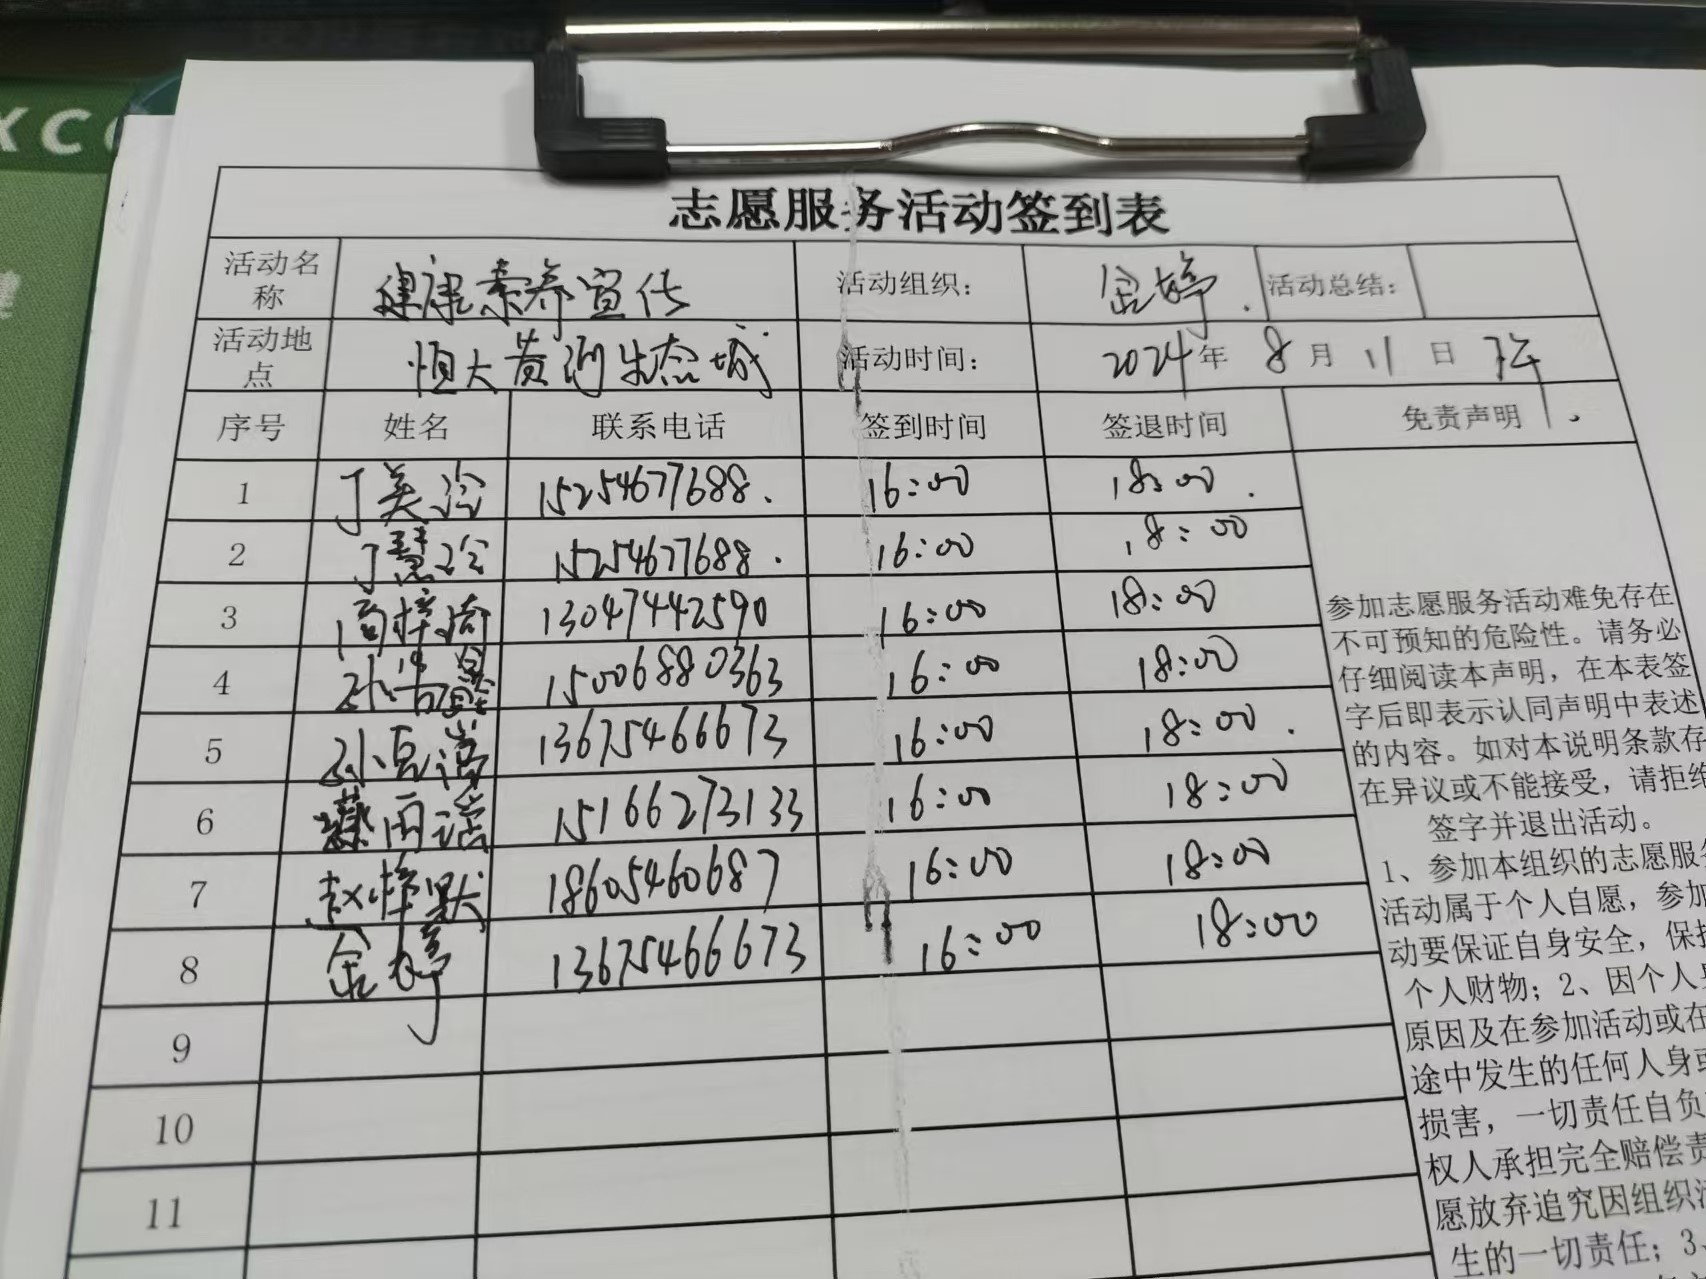 XC
志愿服务活动签到表
活动名称 健康素养宣传 活动组织： 金婷. 活动总结：
活动地点 恒大黄河生态城 活动时间： 2024年 8月 11日 下午.
序号 姓名 联系电话 签到时间 签退时间 免责声明
1 丁美涵 15254677688. 16:00 18:00.
2 丁慧 15254677688. 16:00 18:00
3 13047442590 16:00 18:00
4 孙 15006880363 16:00 18:00
5 孙 13675466673 16:00 18:00.
6 雨 15166273133 16:00 18:00
7 赵梓默 18605460687 16:00 18:00
8 金婷 13675466673 16:00 18:00
9
10
11
参加志愿服务活动难免存在
不可预知的危险性。请务必
仔细阅读本声明，在本表签
字后即表示认同声明中表述
的内容。如对本说明条款存
在异议或不能接受，请拒绝
签字并退出活动。
1、参加本组织的志愿服务
活动属于个人自愿，参加
动要保证自身安全，保护
个人财物；2、因个人
原因及在参加活动或在
途中发生的任何人身或
损害，一切责任自负
权人承担完全赔偿责
愿放弃追究因组织活
生的一切责任；3、